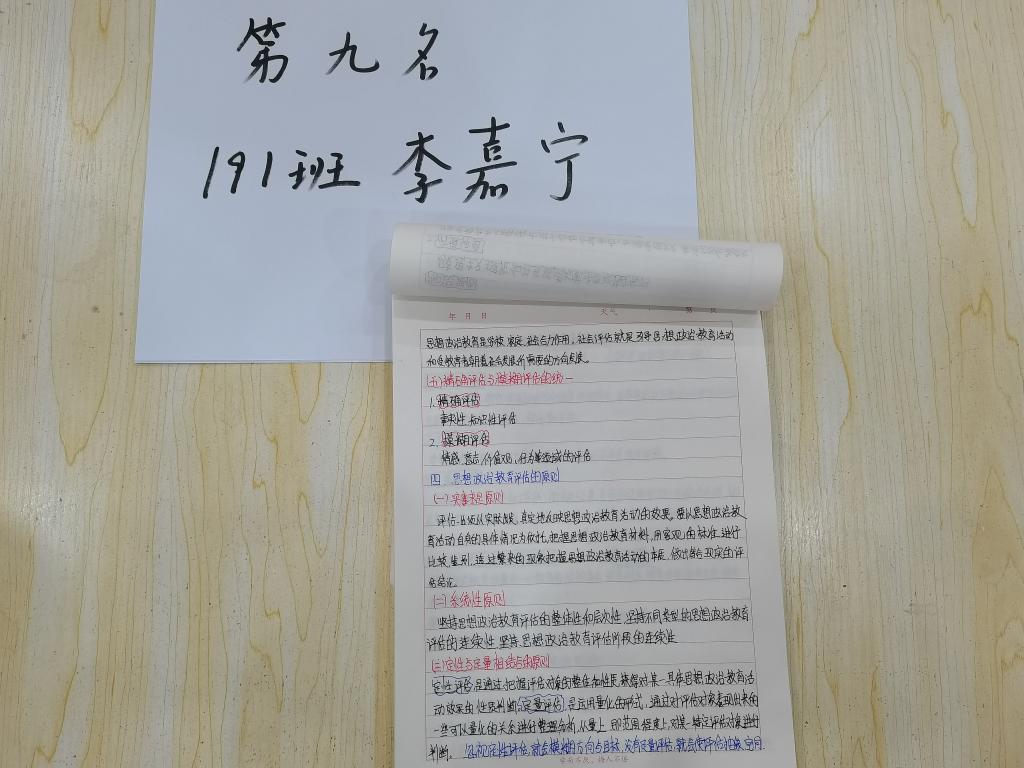 第九名
191班 李嘉宁
年 月 日 天气
思想政治教育是学校、家庭、社会合力作用,社会评估就是引导思想政治教育活动
和受教育者朝着社会发展所需要的方向发展。
(五)精确评估与模糊评估的统一
1.精确评估
事实性、知识性评估
2.模糊评估
情感、意志、价值观、行为等领域的评估
四、思想政治教育评估的原则
(一)实事求是原则
评估必须从实际出发,真实地反映思想政治教育活动的效果,要以思想政治教
育活动自身的具体情况为依托,把握思想政治教育材料,用客观的标准进行
比较鉴别,透过繁杂的现象把握思想政治教育活动的本质,做出符合现实的评
估结论。
(二)系统性原则
坚持思想政治教育评估的整体性和层次性,坚持不同类型的思想政治教育
评估的连续性,坚持思想政治教育评估阶段的连续性
(三)定性与定量相结合的原则
定性评估是通过把握评估对象的整体和性质,获得对某一具体思想政治教育活
动效果的性质判断;定量评估是运用量化的形式,通过对评估对象表现出来的
一些可以量化的关系进行整理分析,从量上即范围、程度上,对某一特定评估对象进行
判断。忽视定性评估,就会模糊方向与目标,没有定量评估,就会使评估抽象、空洞.
学而不厌,诲人不倦